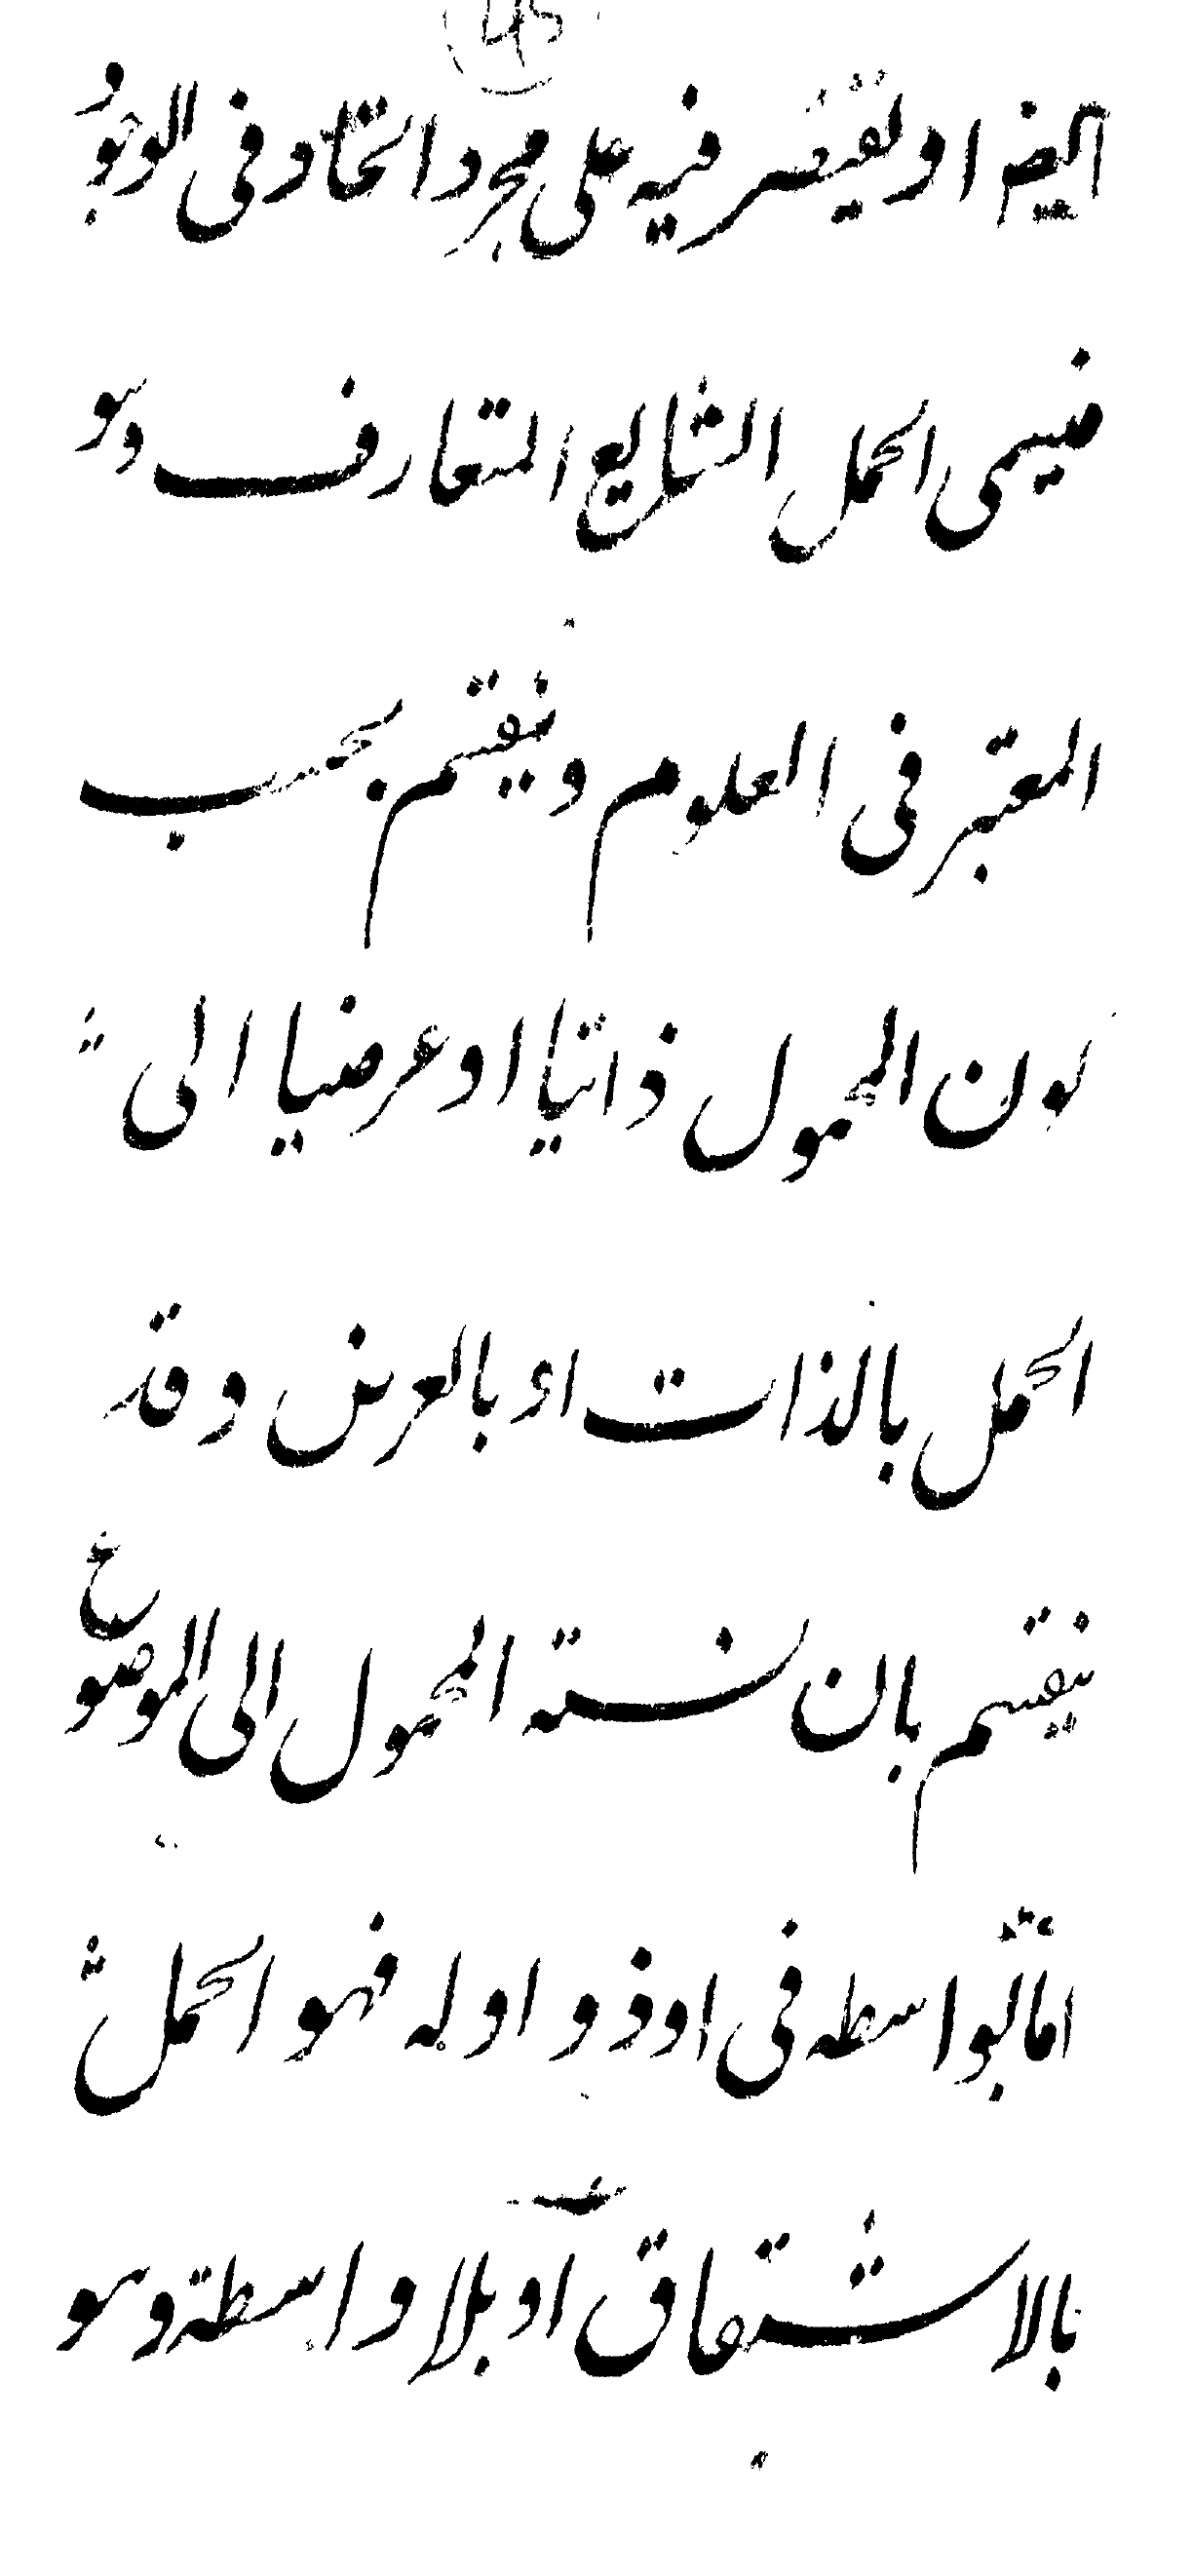 45
ایضا او یقتصر فیه علی مجرد اتحاد فی الوجود
فیسمی الحمل الشایع المتعارف وهو
المعتبر فی العلوم وینقسم بحسب
کون المحمول ذاتیا او عرضیا الی
الحمل بالذات او بالعرض وقد
ینقسم بان نسبة المحمول الی الموضوع
اما بواسطه فی او ذو او له فهو الحمل
بالاشتقاق او بلا واسطة وهو